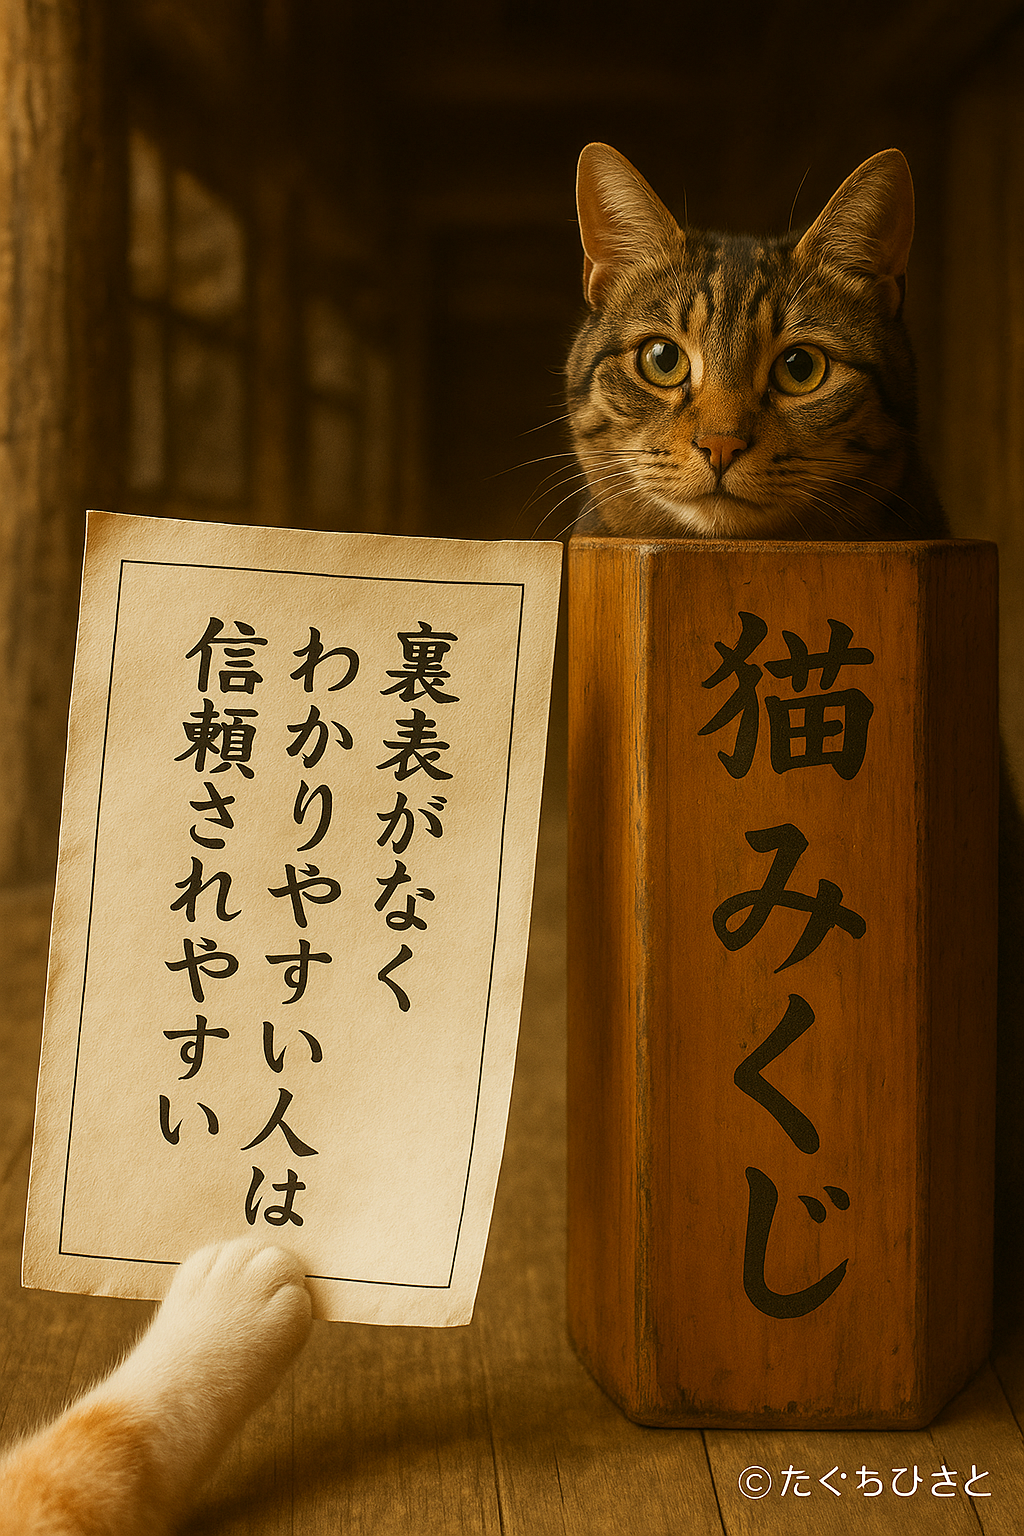 裏表がなく
わかりやすい人は
信頼されやすい
猫みくじ
©たぐちひさと